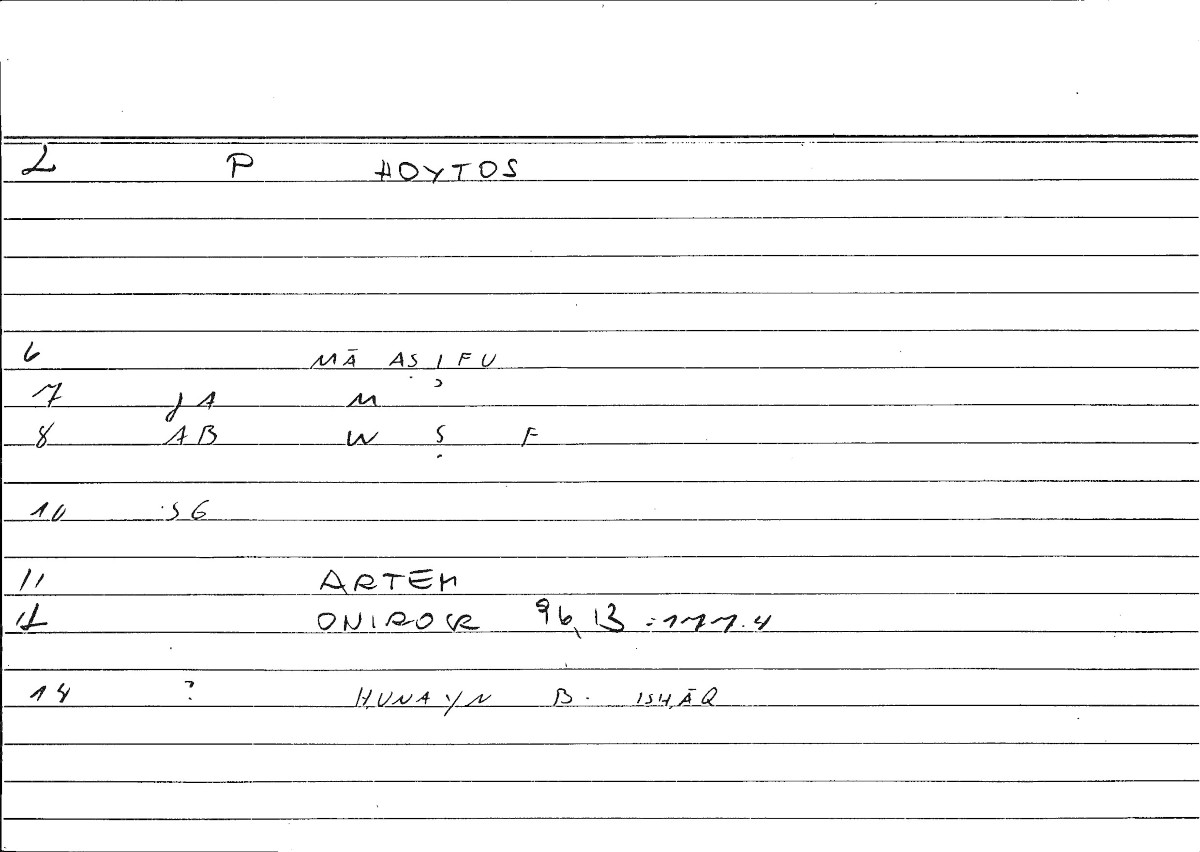 L P HOYTOS
6 MĀ AṢIFU
7 JA M
8 AB W Ṣ F
10 SG
11 ARTEM
ONIROCR 96,13 : 177.4
14 ? ḤUNAYN B. ISḤĀQ